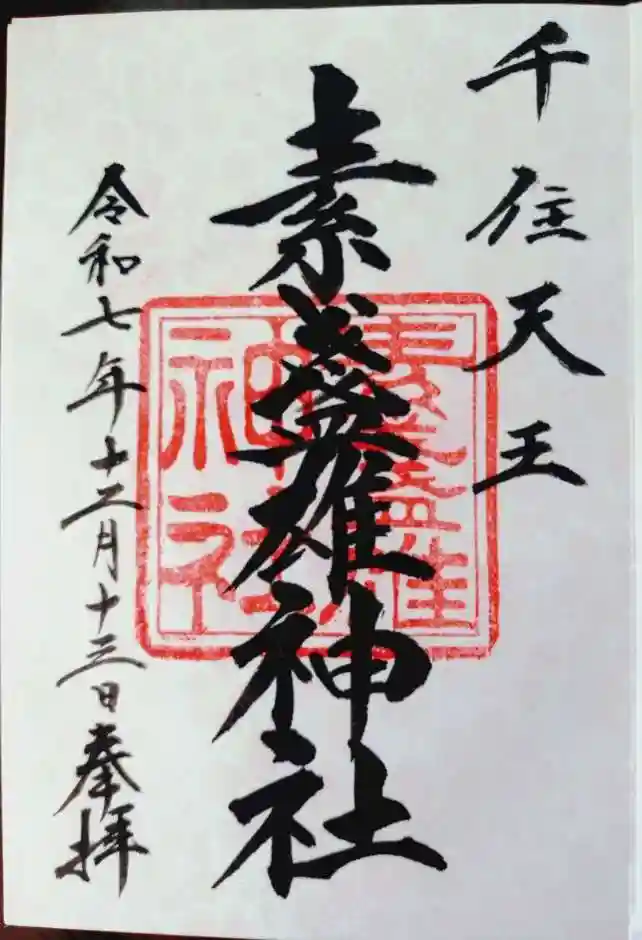 千住天王
素盞雄神社
素盞雄
神社
令和七年十二月十三日奉拝